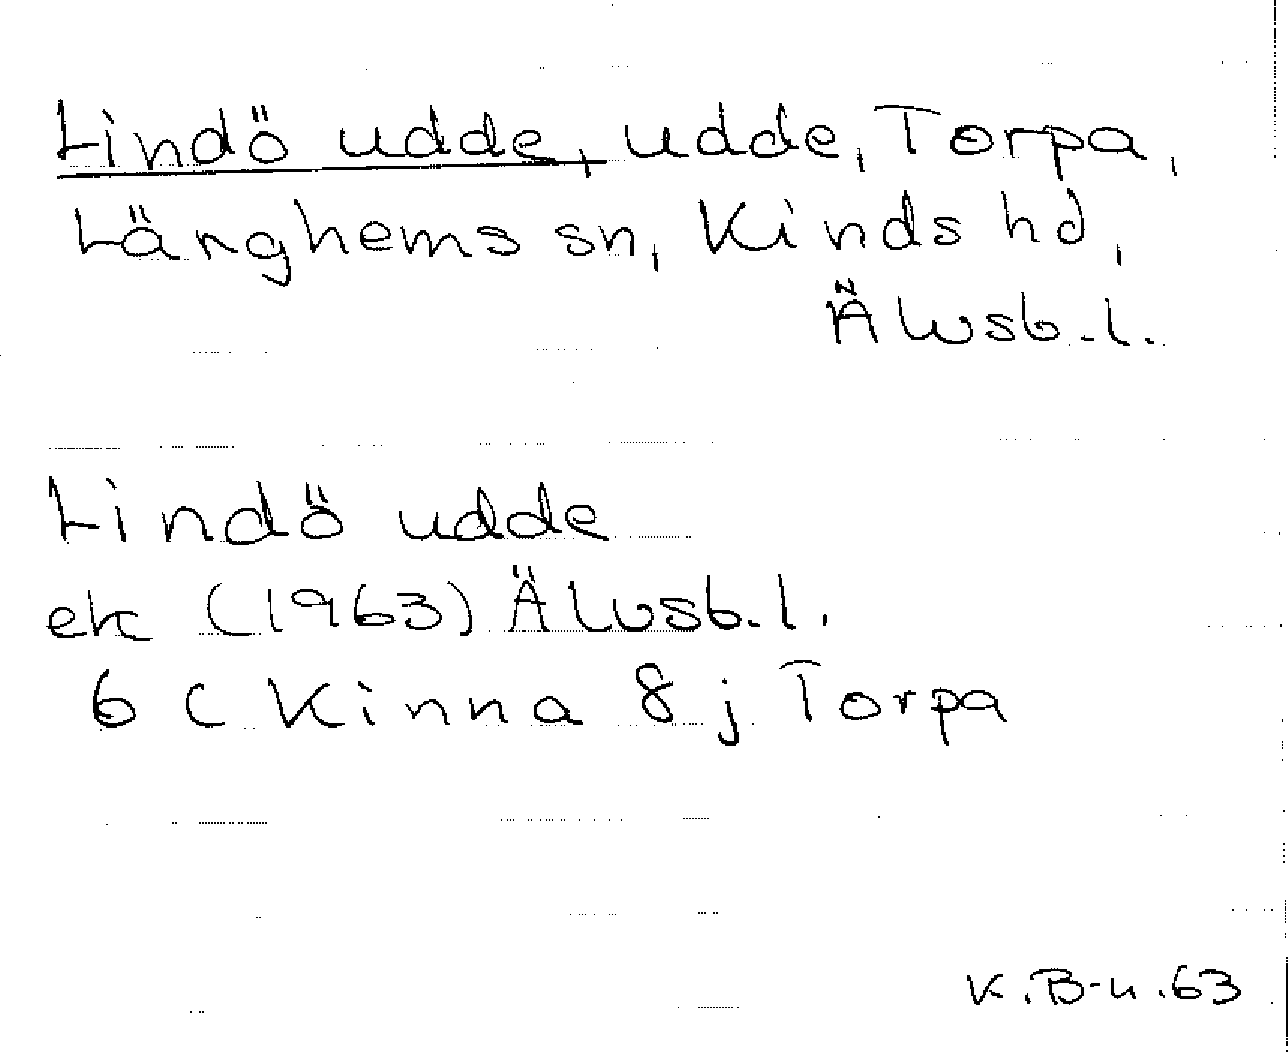 Lindö udde, udde, Torpa,
Länghems sn, Kinds hd,
Älvsb. l.
Lindö udde
ek (1963) Älvsb. l.
6 C Kinna 8 j Torpa
K.B-n.63